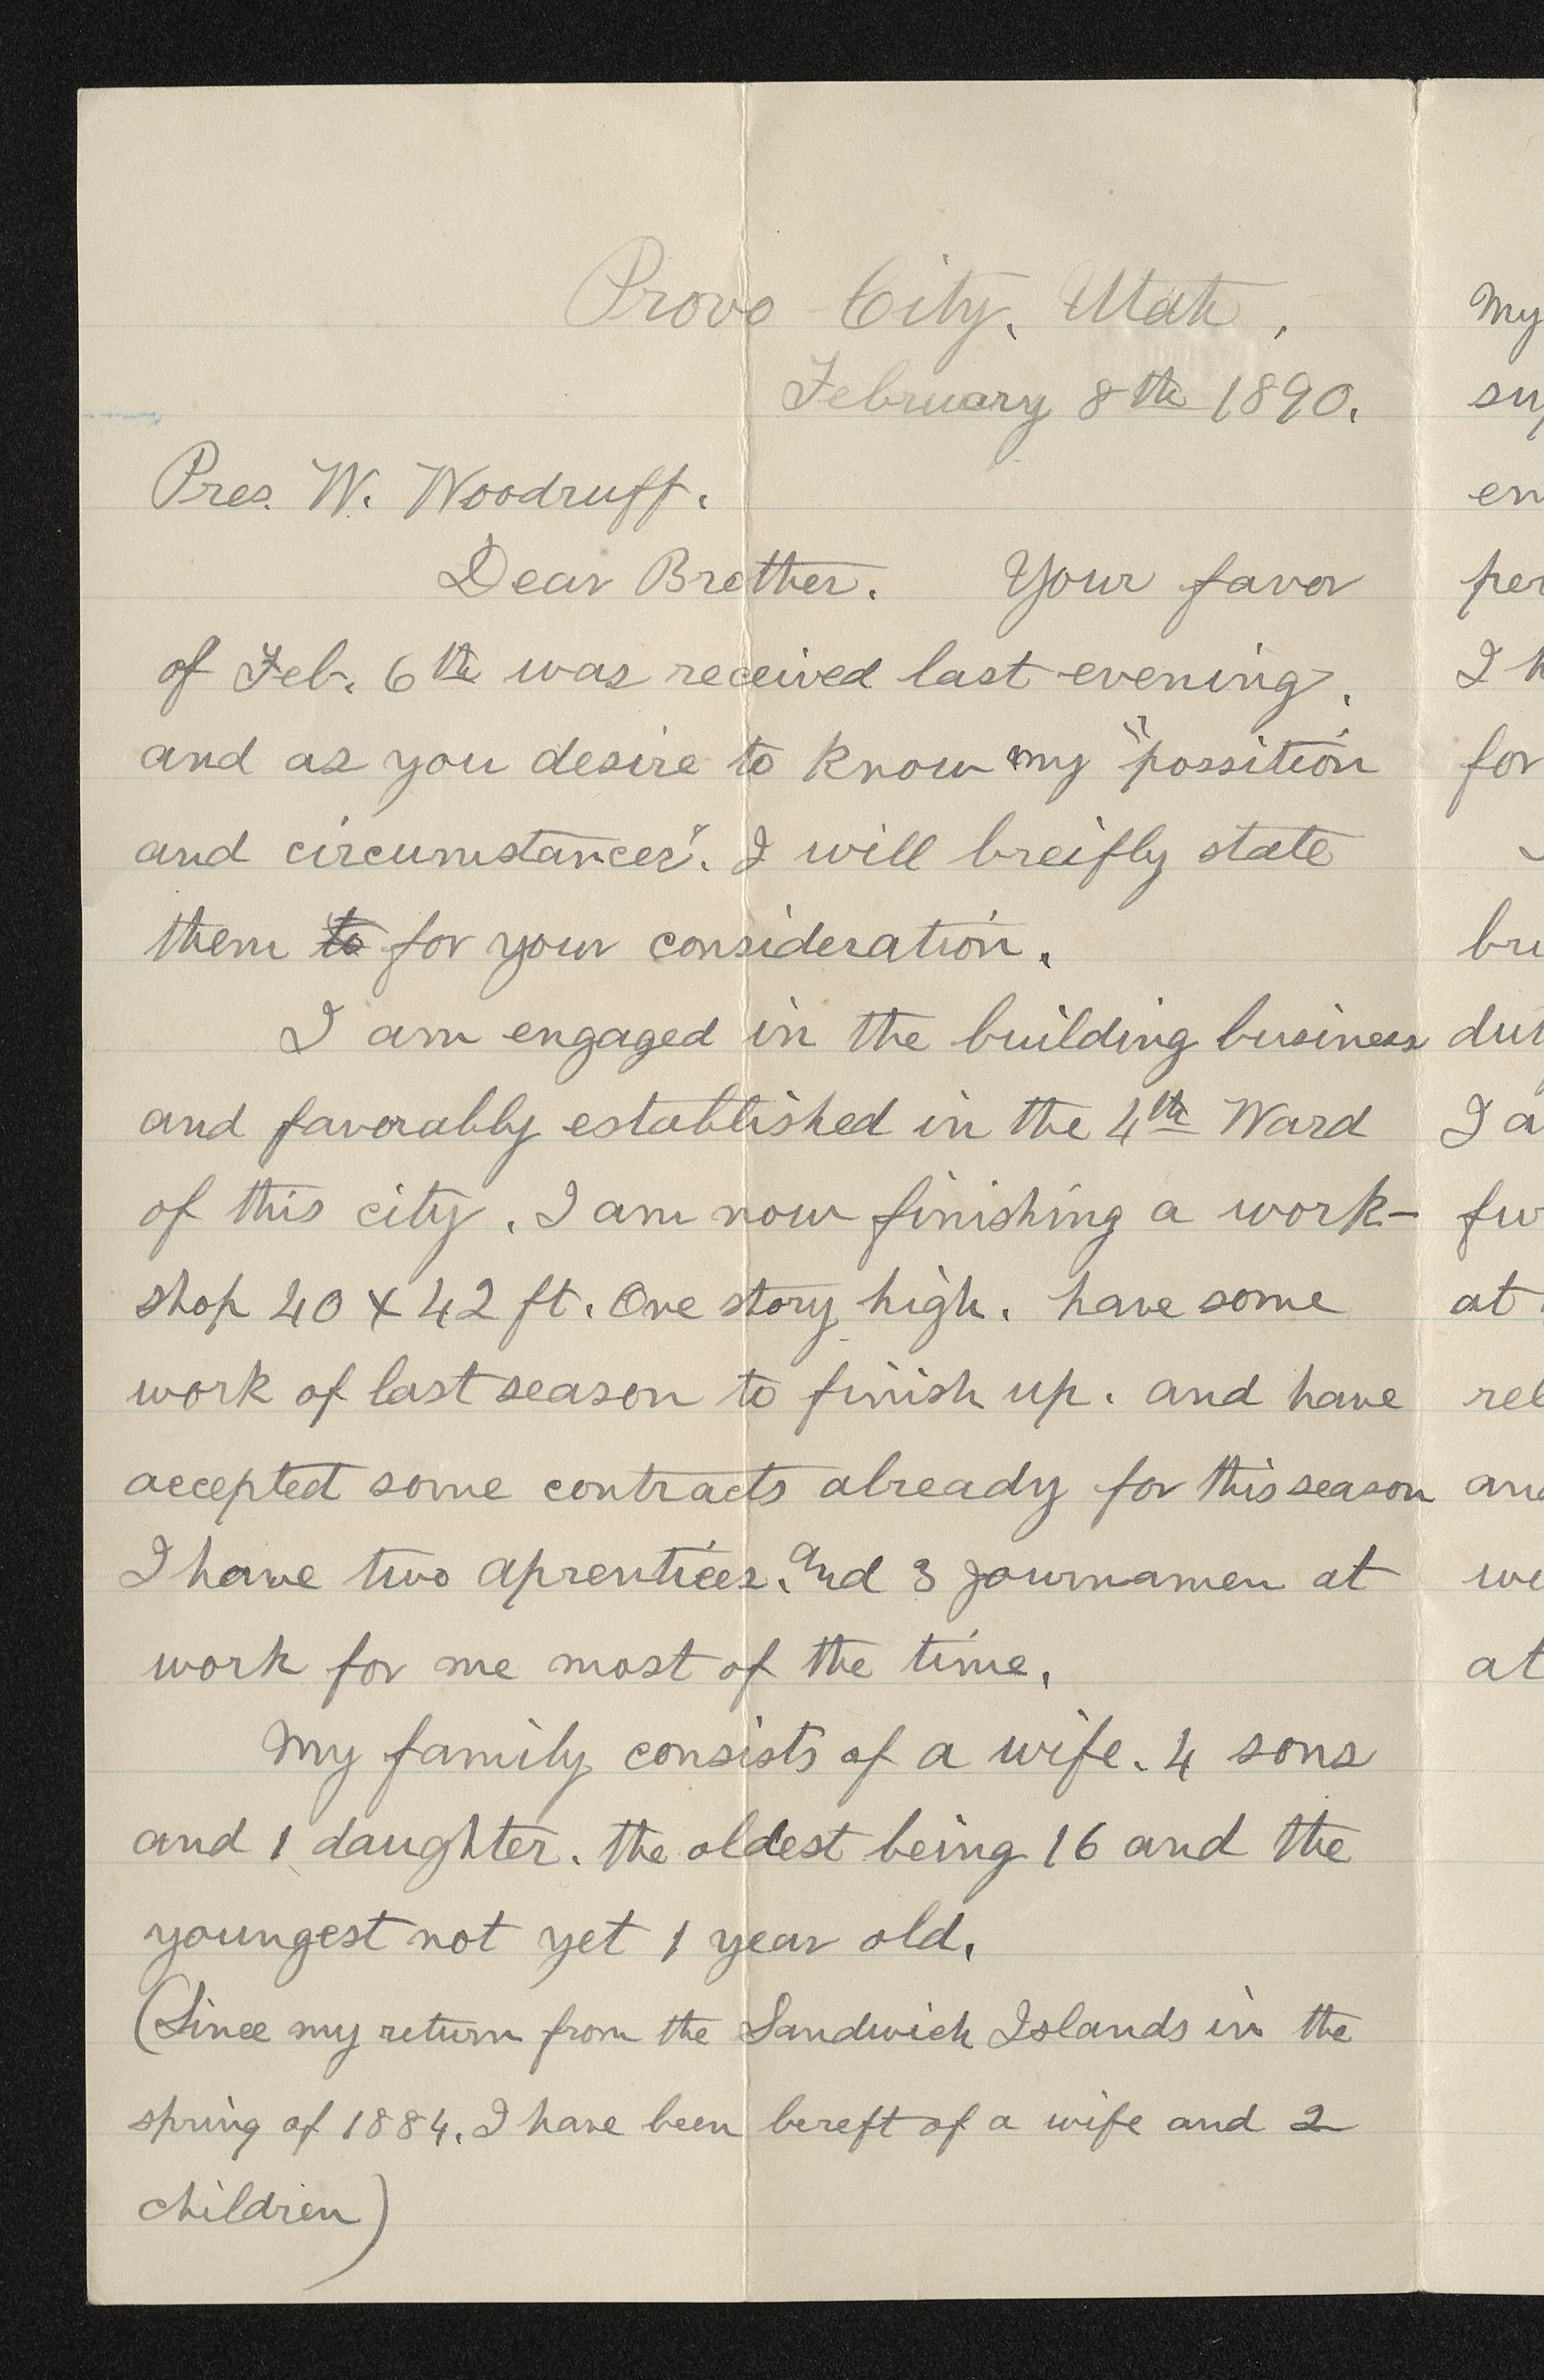 Provo City, Utah,
February 8th 1890.
Pres. W. Woodruff.
Dear Brother. Your favor
of Feb. 6th was received last evening,
and as you desire to know my "possition
and circumstances". I will breifly state
them to for your consideration.
I am engaged in the building business
and favorably established in the 4th Ward
of this city. I am now finishing a work-
shop 40 x 42 ft. One story high. have some
work of last season to finish up. and have
accepted some contracts already for this season
I have two aprentices. and 3 journamen at
work for me most of the time.
My family consists of a wife. 4 sons
and 1 daughter. the oldest being 16 and the
youngest not yet 1 year old.
(Since my return from the Sandwich Islands in the
spring of 1884. I have been bereft of a wife and 2
children)
My
su
en
per
I h
for
bu
du
I a
fu
at
rel
and
we
at